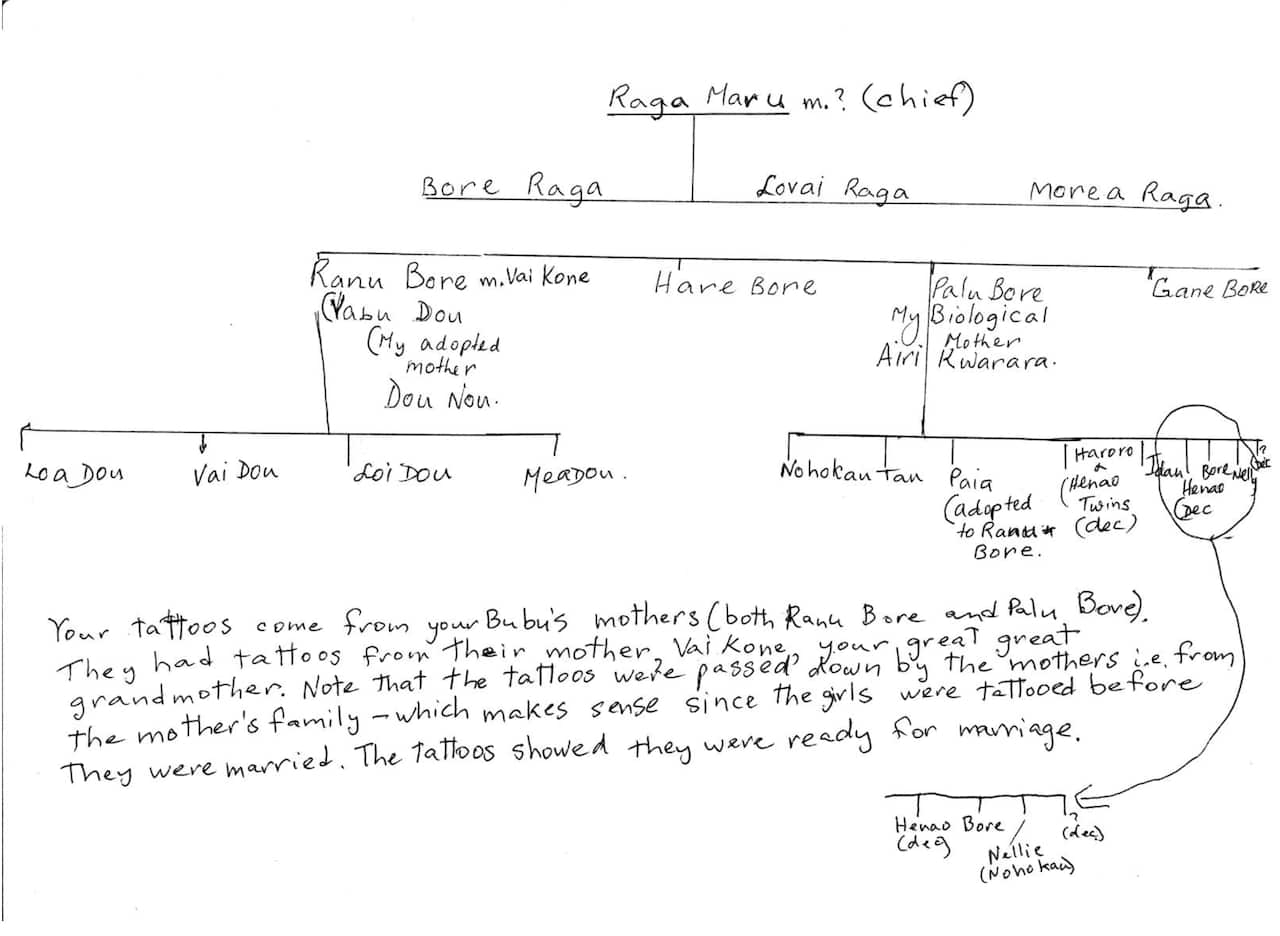 Raga Maru m.? (chief)
Bore Raga Lovai Raga Morea Raga.
Ranu Bore m. Vai Kone Hare Bore Palu Bore Gane Bore
(Vabu Dou My Biological
(My adopted Mother
mother Airi Kwarara.
Dou Nou.
Loa Dou Vai Dou Loi Dou Mea Dou.
Nohokan Tan Paia Haroro Idau Bore Nelly ?
(adopted & Henao (dec
to Ranu (Henao (Dec
Bore. Twins
(dec)
Your tattoos come from your Bubu's mothers (both Ranu Bore and Palu Bore).
They had tattoos from their mother, Vai Kone, your great great
grandmother. Note that the tattoos were 'passed' down by the mothers i.e. from
the mother's family - which makes sense since the girls were tattooed before
They were married. The tattoos showed they were ready for marriage.
Henao Bore ?
(dec) (dec)
Nellie
(Nohokau)